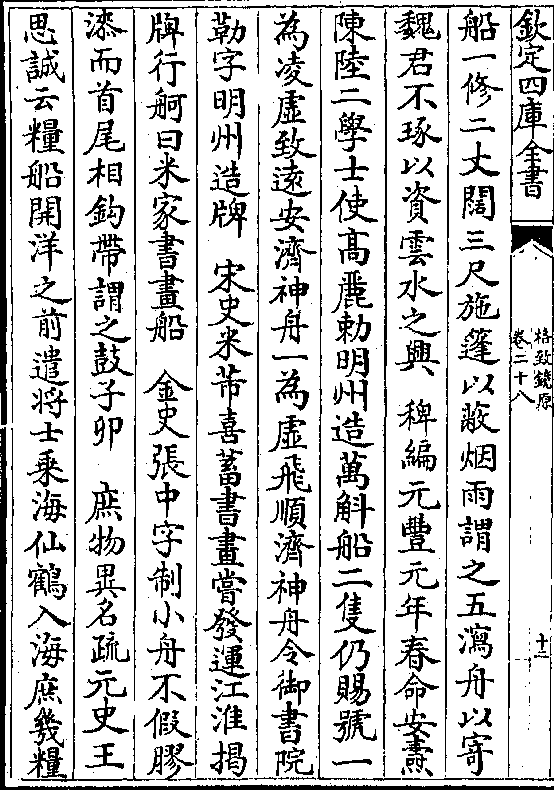 欽定四庫全書
格致鏡原
卷二十八
十二
船一修二丈闊三尺施篷以蔽烟雨謂之五瀉舟以寄
魏君不琢以資雲水之興 稗編元豐元年春命安燾
陳陸二學士使高麗勅明州造萬斛船二隻仍賜號一
為凌虛致遠安濟神舟一為虛飛順濟神舟令御書院
勒字明州造牌 宋史米芾喜蓄書畫嘗發運江淮揭
牌行舸曰米家書畫船 金史張中字制小舟不假膠
漆而首尾相鈎帶謂之鼓子卯 庶物異名疏元史王
思誠云糧船開洋之前遣將士乘海仙鶴入海庶幾糧